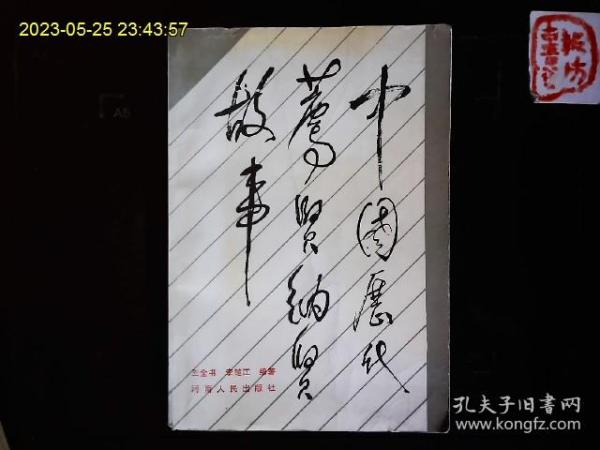 2023-05-25 23:43:57
中国历代
荐贤纳贤
故事
王全书 李楚江 编著
河南人民出版社
孔夫子旧书网
www.kongfz.com